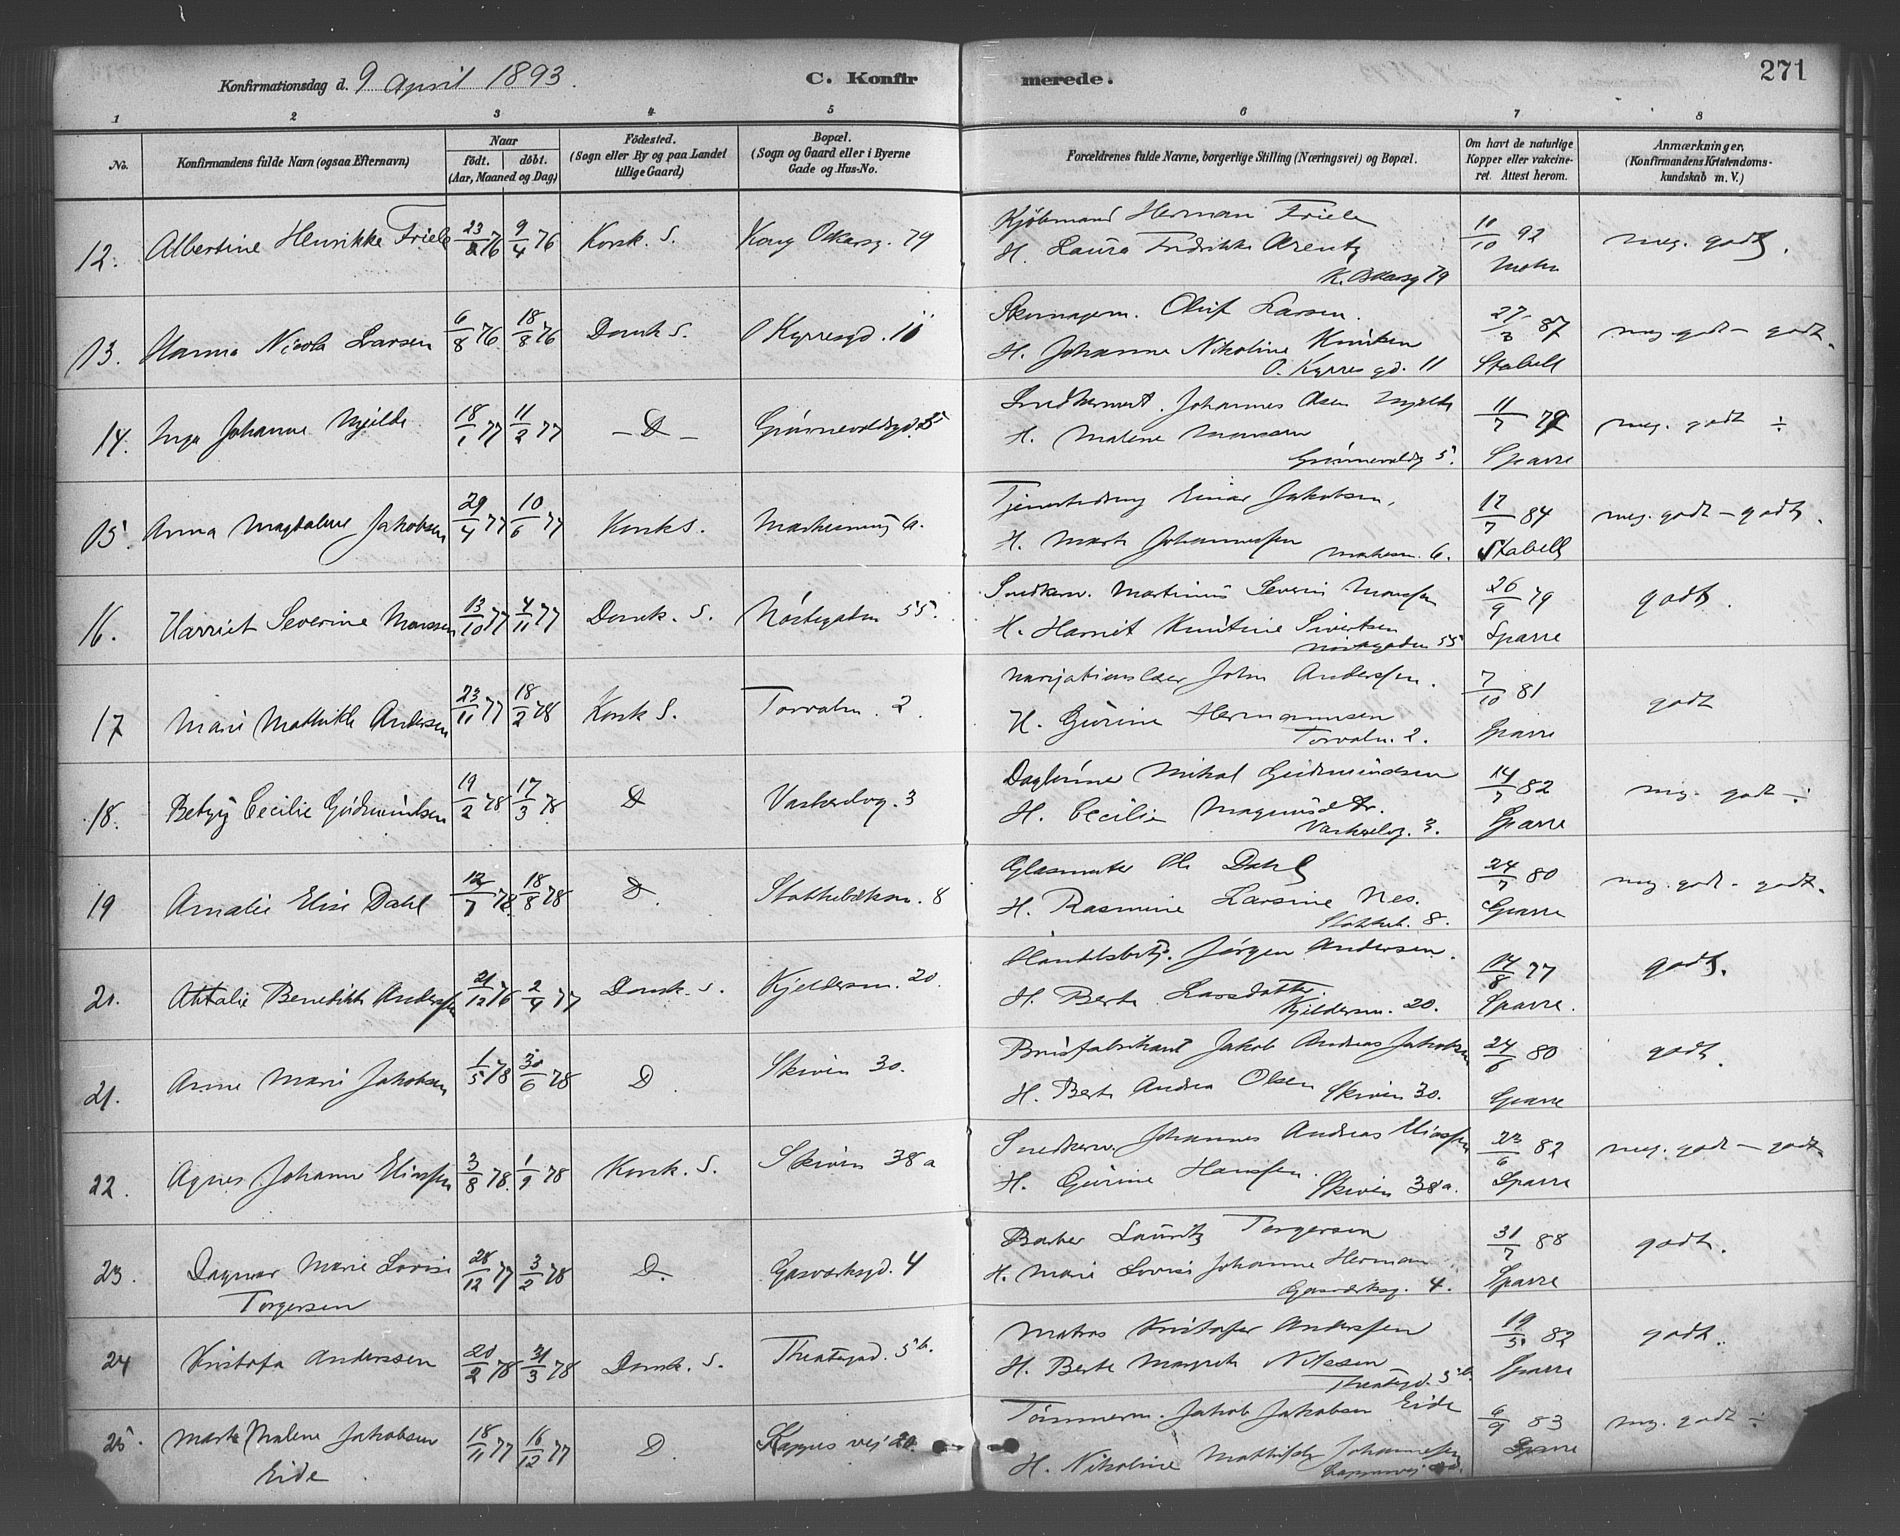 Konfirmationsdag d. 9 April 1893.
C. Konfirmerede.
271
1 2 3 4 5 6 7 8
No.
Konfirmandens fulde Navn (ogsaa Efternavn)
Naar
födt. döbt.
(Aar, Maaned og Dag)
Födested.
(Sogn eller By og paa Landet
tillige Gaard)
Bopæl.
(Sogn og Gaard eller i Byerne
Gade og Hus-No.
Forældrenes fulde Navne, borgerlige Stilling (Næringsvei) og Bopæl.
Om havt de naturlige
Kopper eller vakcineret.
Attest herom.
Anmærkninger,
(Konfirmandens Kristendomskundskab
m. V.)
12. Albertine Henrikke Friele 23/2 76 9/4 76 Korsk. S. Kong Oskarsg. 79
Kjöbmand Herman Friele
H. Laura Fredrikke Arentz
K. Oskarsg 79
11/10 92 Mohn
meg. godt.
13. Hanna Nicola Larsen 6/8 76 18/8 76 Domk S. O Kyrresgd. 11
Skomagerm. Oluf Larsen.
H. Johanne Nikoline Knutsen
O. Kyrres gd. 11
27/3 87 Stabell
meg. godt - godt.
14. Inga Johanne Mjelde 18/1 77 11/2 77 - D -
Johannes Olsen Mjelde
H. Malene Monsen
5.
11/7 79 Sparre
meg. godt ÷
15. Anna Magdalene Jakobsen 29/4 77 10/6 77 Korsk S. 6.
Einar Jakobsen,
H. Marte Johannessen
6.
17/7 84 Stabell
meg. godt - godt.
16. Harriet Severine Monssen 13/10 77 4/11 77 Domk. S. Nöstegaden 55.
Snedkersv. Martinus Severin Monssen
H. Harriet Knutine Sivertsen
Nöstegaden 55
26/9 79 Sparre
godt.
17 Marie Mathilde Andersen 23/11 77 18/2 78 Korsk S. Torvalm. 2.
Navigationslærer John Anderssen.
H. Gurine Hermannsen
Torvalm. 2.
7/10 81 Sparre
godt
18. Betzy Cecilie Gudmundsen 19/2 78 17/3 78 D Vaskerelvg. 3
Daglönner Mikal Gudmundsen
H. Cecilie Magnusd tr.
Vaskerelvg. 3.
14/7 82 Sparre
meg. godt ÷
19 Amalie Elise Dahl 12/7 78. 18/8 78 D. 8
Glasmester Ole Dahl
H. Rasmine Larsine Nes.
8.
24/7 80 Sparre
meg. godt - godt.
20. Attalie Benedikte Anderssen 21/12 76 2/4 77 Domk. S. Kjeldersm. 20.
Handelsbetj. Jörgen Andersen.
H. Berte Larsdatter
Kjeldersm. 20.
14/8 77 Sparre.
godt.
21. Anne Marie Jakobsen 1/5 78 30/6 78 D. Skiven 30.
Brusfabrikant Jakob Andreas Jakobsen
H. Berte Andrea Olsen Skiven 30.
24/6 80 Sparre
godt.
22. Agnes Johanne Eliassen 3/8 78. 1/9 78 Korsk. S. Skiven 38 a
Snedkersv. Johannes Andreas Eliassen
H. Gurine Hanssen. Skiven 38 a.
23/6 82 Sparre
meg. godt - godt
23. Dagmar Marie Lovise
Torgersen
28/12 77 3/2 78 D. Gasværksgd. 4
Barber Lauritz Torgersen
H. Marie Lovise Johanne Herman
Gasværksg. 4.
31/7 88 Sparre
godt.
24 Kristofa Anderssen 20/2 78 31/3 78 Domk. S. Theatergd. 5 b.
Matros Kristofer Anderssen
H. Berte Margrete Nilssen
Theatergd. 5 b.
19/5 82 Sparre
godt.
25. Marte Malene Jakobsen
Eide.
18/11 77 16/12 77 D. Kappes vej 20.
Tömmerm. Jakob Jakobsen Eide
H. Nikoline Mathilde Johannessen
6/9 83 Sparre
meg. godt ÷